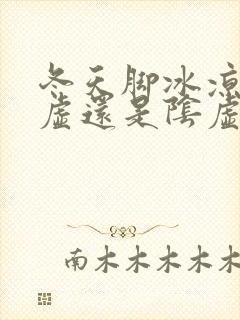 冬天脚冰凉
虚還是陰虚
南木木木木木